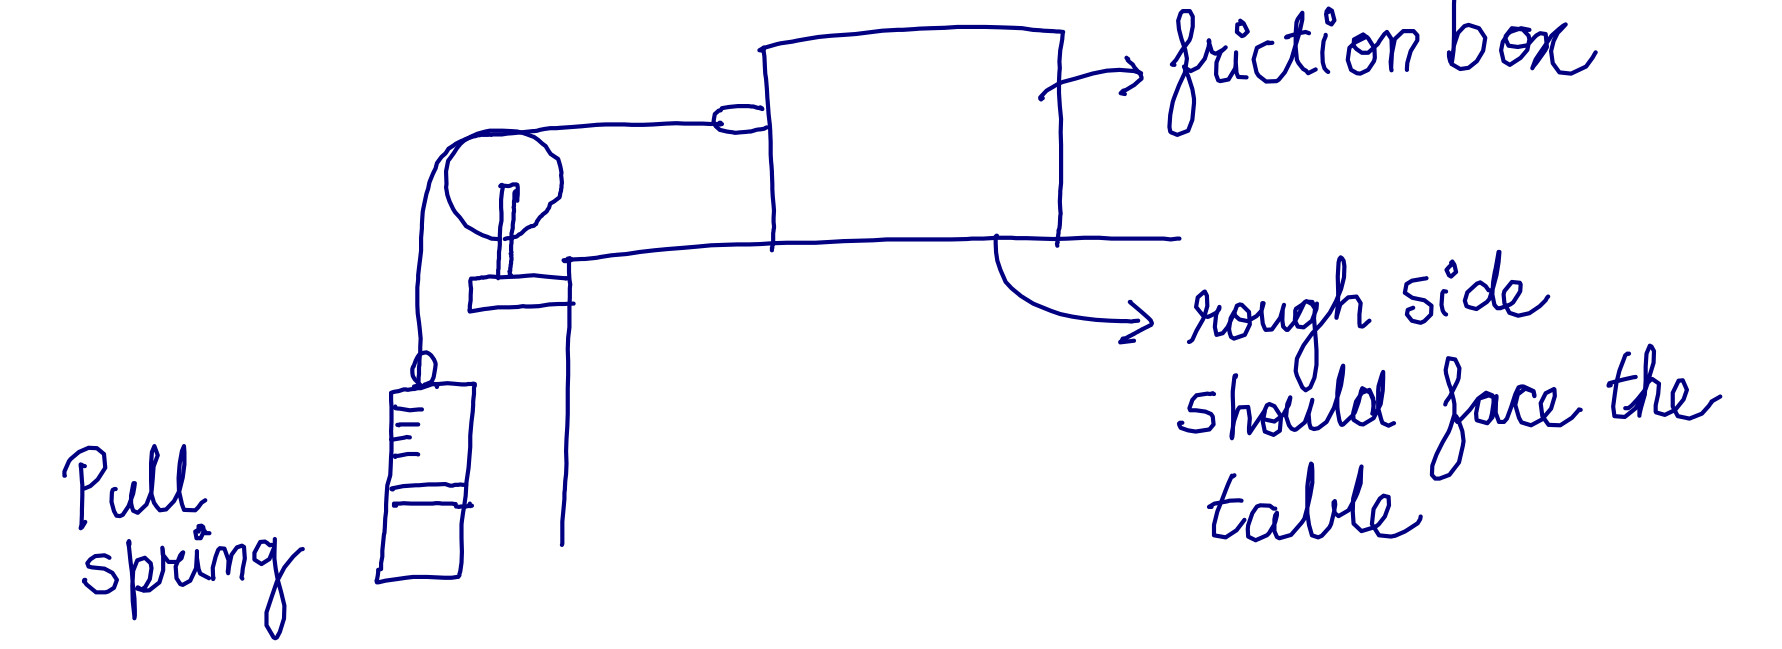 friction box
rough side
should face the
table
Pull
spring